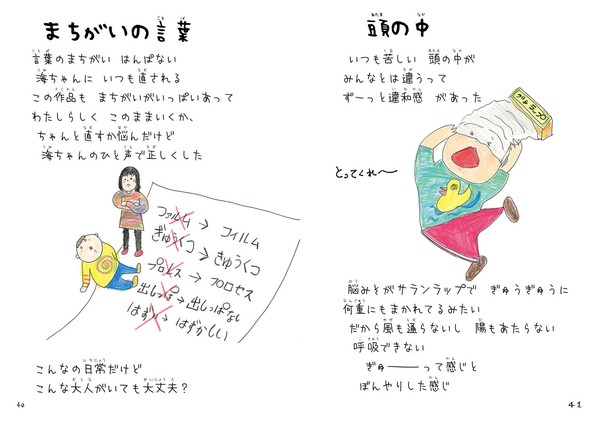 まちがいの言葉
言葉のまちがい はんぱない
海ちゃんに いつも直される
この作品も まちがいがいっぱいあって
わたしらしく このままいくか、
ちゃんと直すか悩んだけど
海ちゃんのひと声で正しくした
ファルム→フィルム
ぎゅうくつ→きゅうくつ
プロレス→プロセス
出しっぱ→出しっぱなし
はずい→はずかしい
こんなの日常だけど
こんな大人がいても大丈夫?
40
頭の中
いつも苦しい 頭の中が
みんなとは違うって
ずーっと違和感 があった
とってくれ〜
脳みそがサランラップで ぎゅうぎゅうに
何重にもまかれてるみたい
だから風も通らないし 陽もあたらない
呼吸できない
ぎゅ――って感じと
ぼんやりした感じ
41